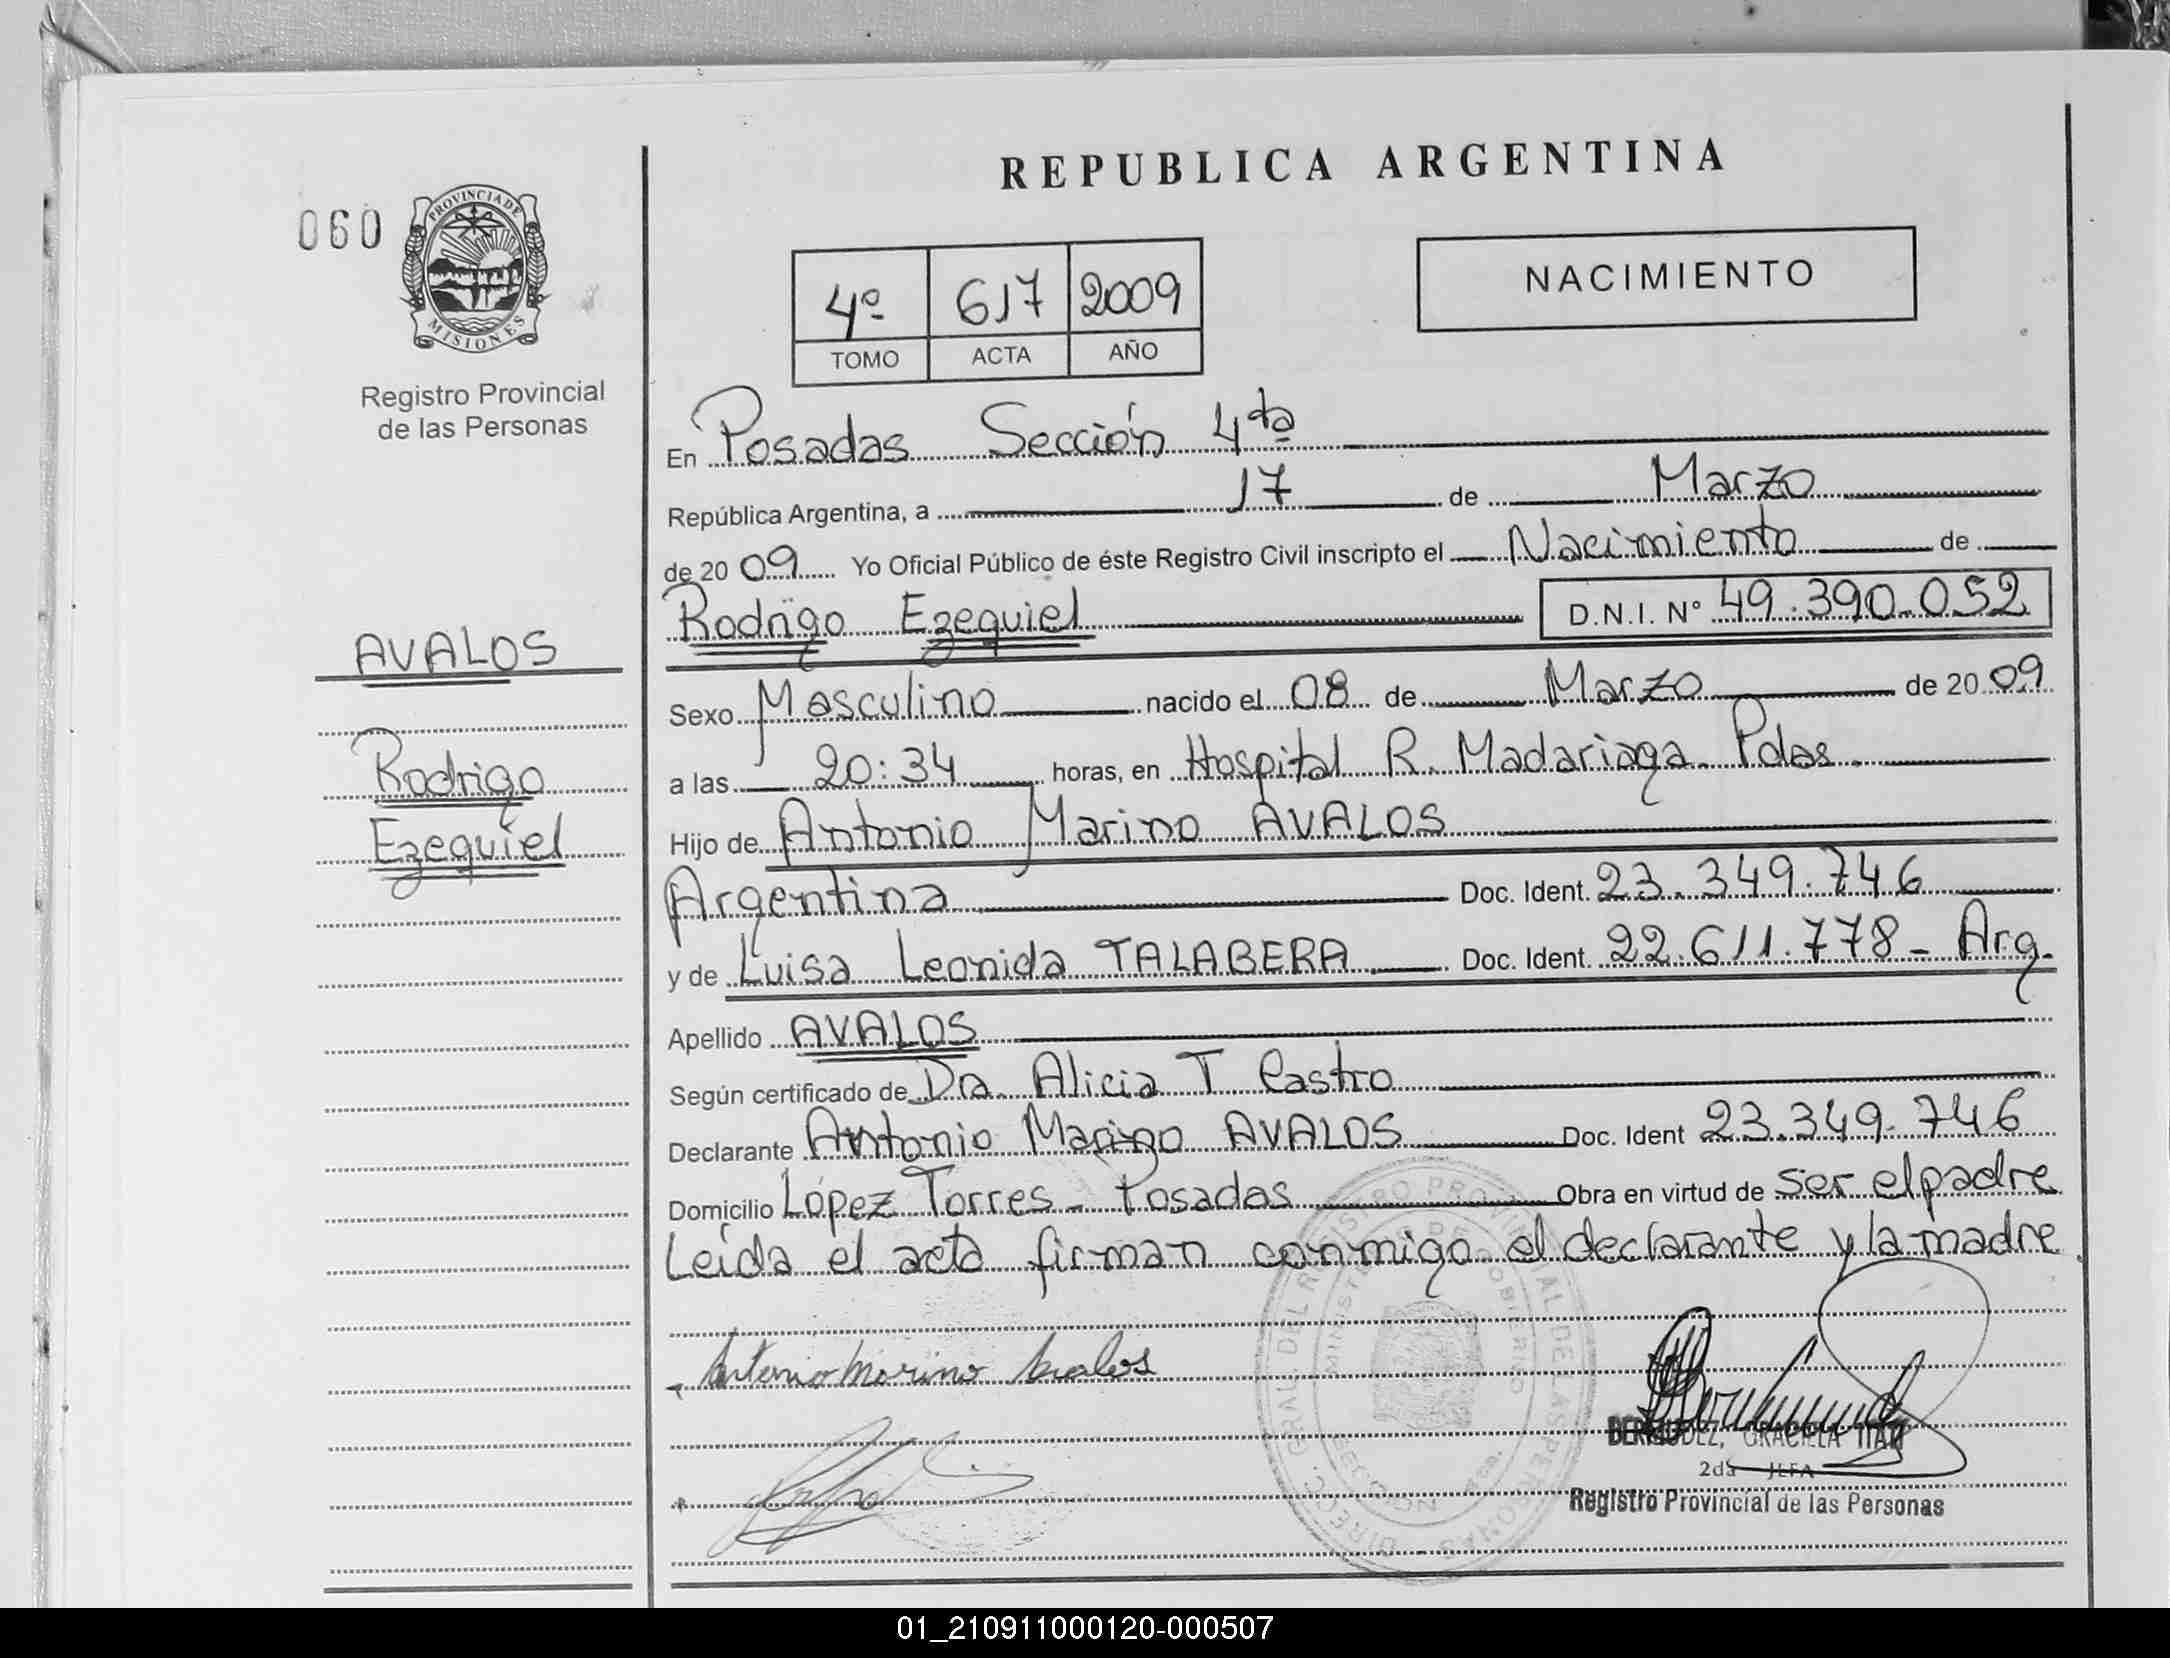 REPUBLICA ARGENTINA
060
PROVINCIA DE
MISIONES
Registro Provincial
de las Personas
4º 617 2009
TOMO ACTA AÑO
NACIMIENTO
En Posadas Sección 4ta
República Argentina, a 17 de Marzo
de 2009 Yo Oficial Público de éste Registro Civil inscripto el Nacimiento de
Rodrigo Ezequiel D.N.I. Nº 49.390.052
AVALOS
Rodrigo
Ezequiel
Sexo Masculino nacido el 08 de Marzo de 2009
a las 20:34 horas, en Hospital R. Madariaga Pdas.
Hijo de Antonio Marino AVALOS
Argentina Doc. Ident. 23.349.746
y de Luisa Leonida TALABERA Doc. Ident. 22.611.778 - Arg.
Apellido AVALOS
Según certificado de Dra. Alicia T Castro
Declarante Antonio Marino AVALOS Doc. Ident 23.349.746
Domicilio López Torres - Posadas Obra en virtud de ser el padre
Leída el acta firman conmigo el declarante y la madre.
Antonio Marino Avalos
DIRECC. GRAL. DEL REGISTRO PROVINCIAL DE LAS PERSONAS
MINISTERIO DE GOBIERNO
SECCION 4ta.
BERMUDEZ, GRACIELA ITATI
2da JEFA
Registro Provincial de las Personas
01_210911000120-000507